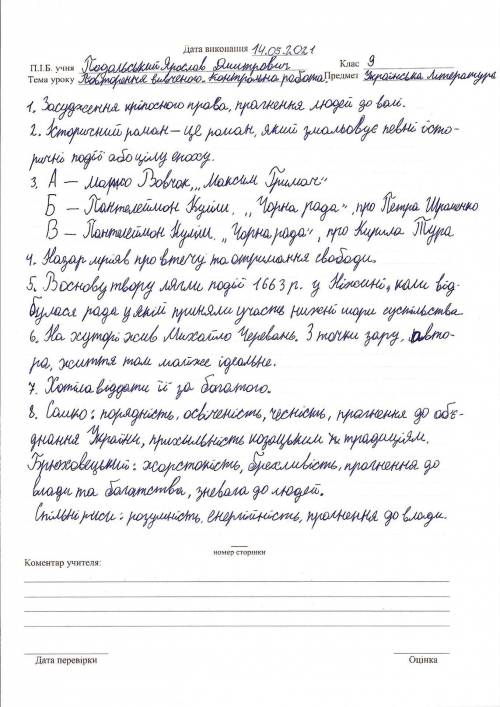 Дата виконання 14.05.2021
П.І.Б. учня Подольський Ярослав Дмитрович Клас 9
Тема уроку Повторення вивченого. Контрольна робота. Предмет Українська література
1. Засудження кріпосного права, прагнення людей до волі.
2. Історичний роман – це роман, який змальовує певні істо-
ричні події або цілу епоху.
3. А – Марко Вовчок, „Максим Гримач“
Б – Пантелеймон Куліш, „Чорна рада“, про Петра Шраменко
В – Пантелеймон Куліш, „Чорна рада“, про Кирила Тура
4. Назар мріяв про втечу та отримання свободи.
5. В основу твору лягли події 1663 р. у Ніжині, коли від-
булася рада у якій приняли участь нижчі шари суспільства
6. На хуторі жив Михайло Черевань. З точки зору, авто-
ра, життя там майже ідеальне.
7. Хотіла віддати її за богатого.
8. Сомко: порядність, освіченість, чесність, прагнення до об'є-
днання України, прихильність козацьким традиціям.
Брюховецький: жорстокість, брехливість, прагнення до
влади та богатства, зневага до людей.
Спільні риси: розумність, енергійність, прагнення до влади.
номер сторінки
Коментар учителя:
Дата перевірки Оцінка